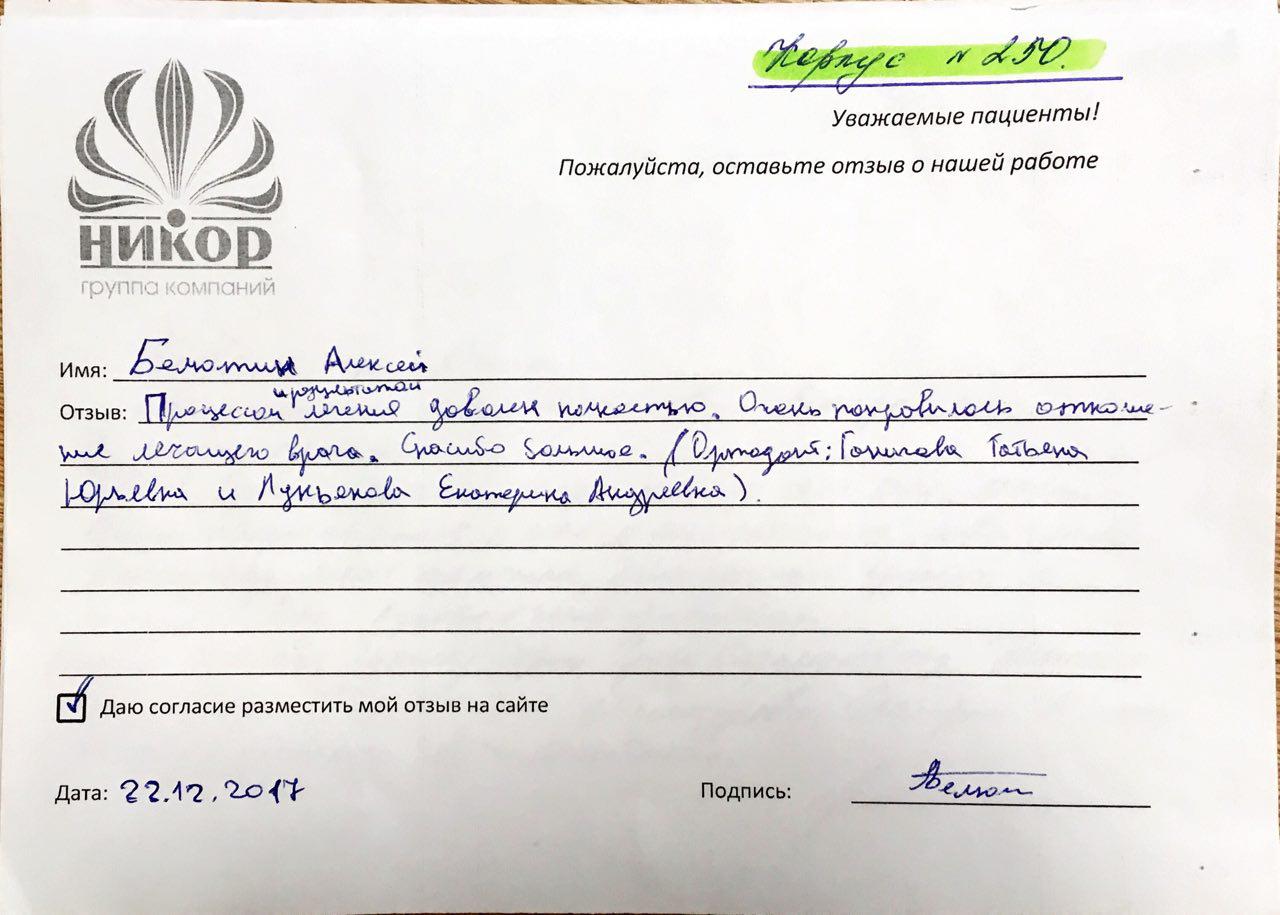 Корпус № 250.
Уважаемые пациенты!
Пожалуйста, оставьте отзыв о нашей работе
никор
группа компаний
Имя: Алексей
и результатом
Отзыв: Процессом лечения доволен полностью. Очень понравилось отноше-
ние лечащего врача. Спасибо большое. (Ортодонт: Татьяна
Юрьевна и Лукьянова Екатерина Андреевна).
Даю согласие разместить мой отзыв на сайте
Дата: 22.12.2017
Подпись: